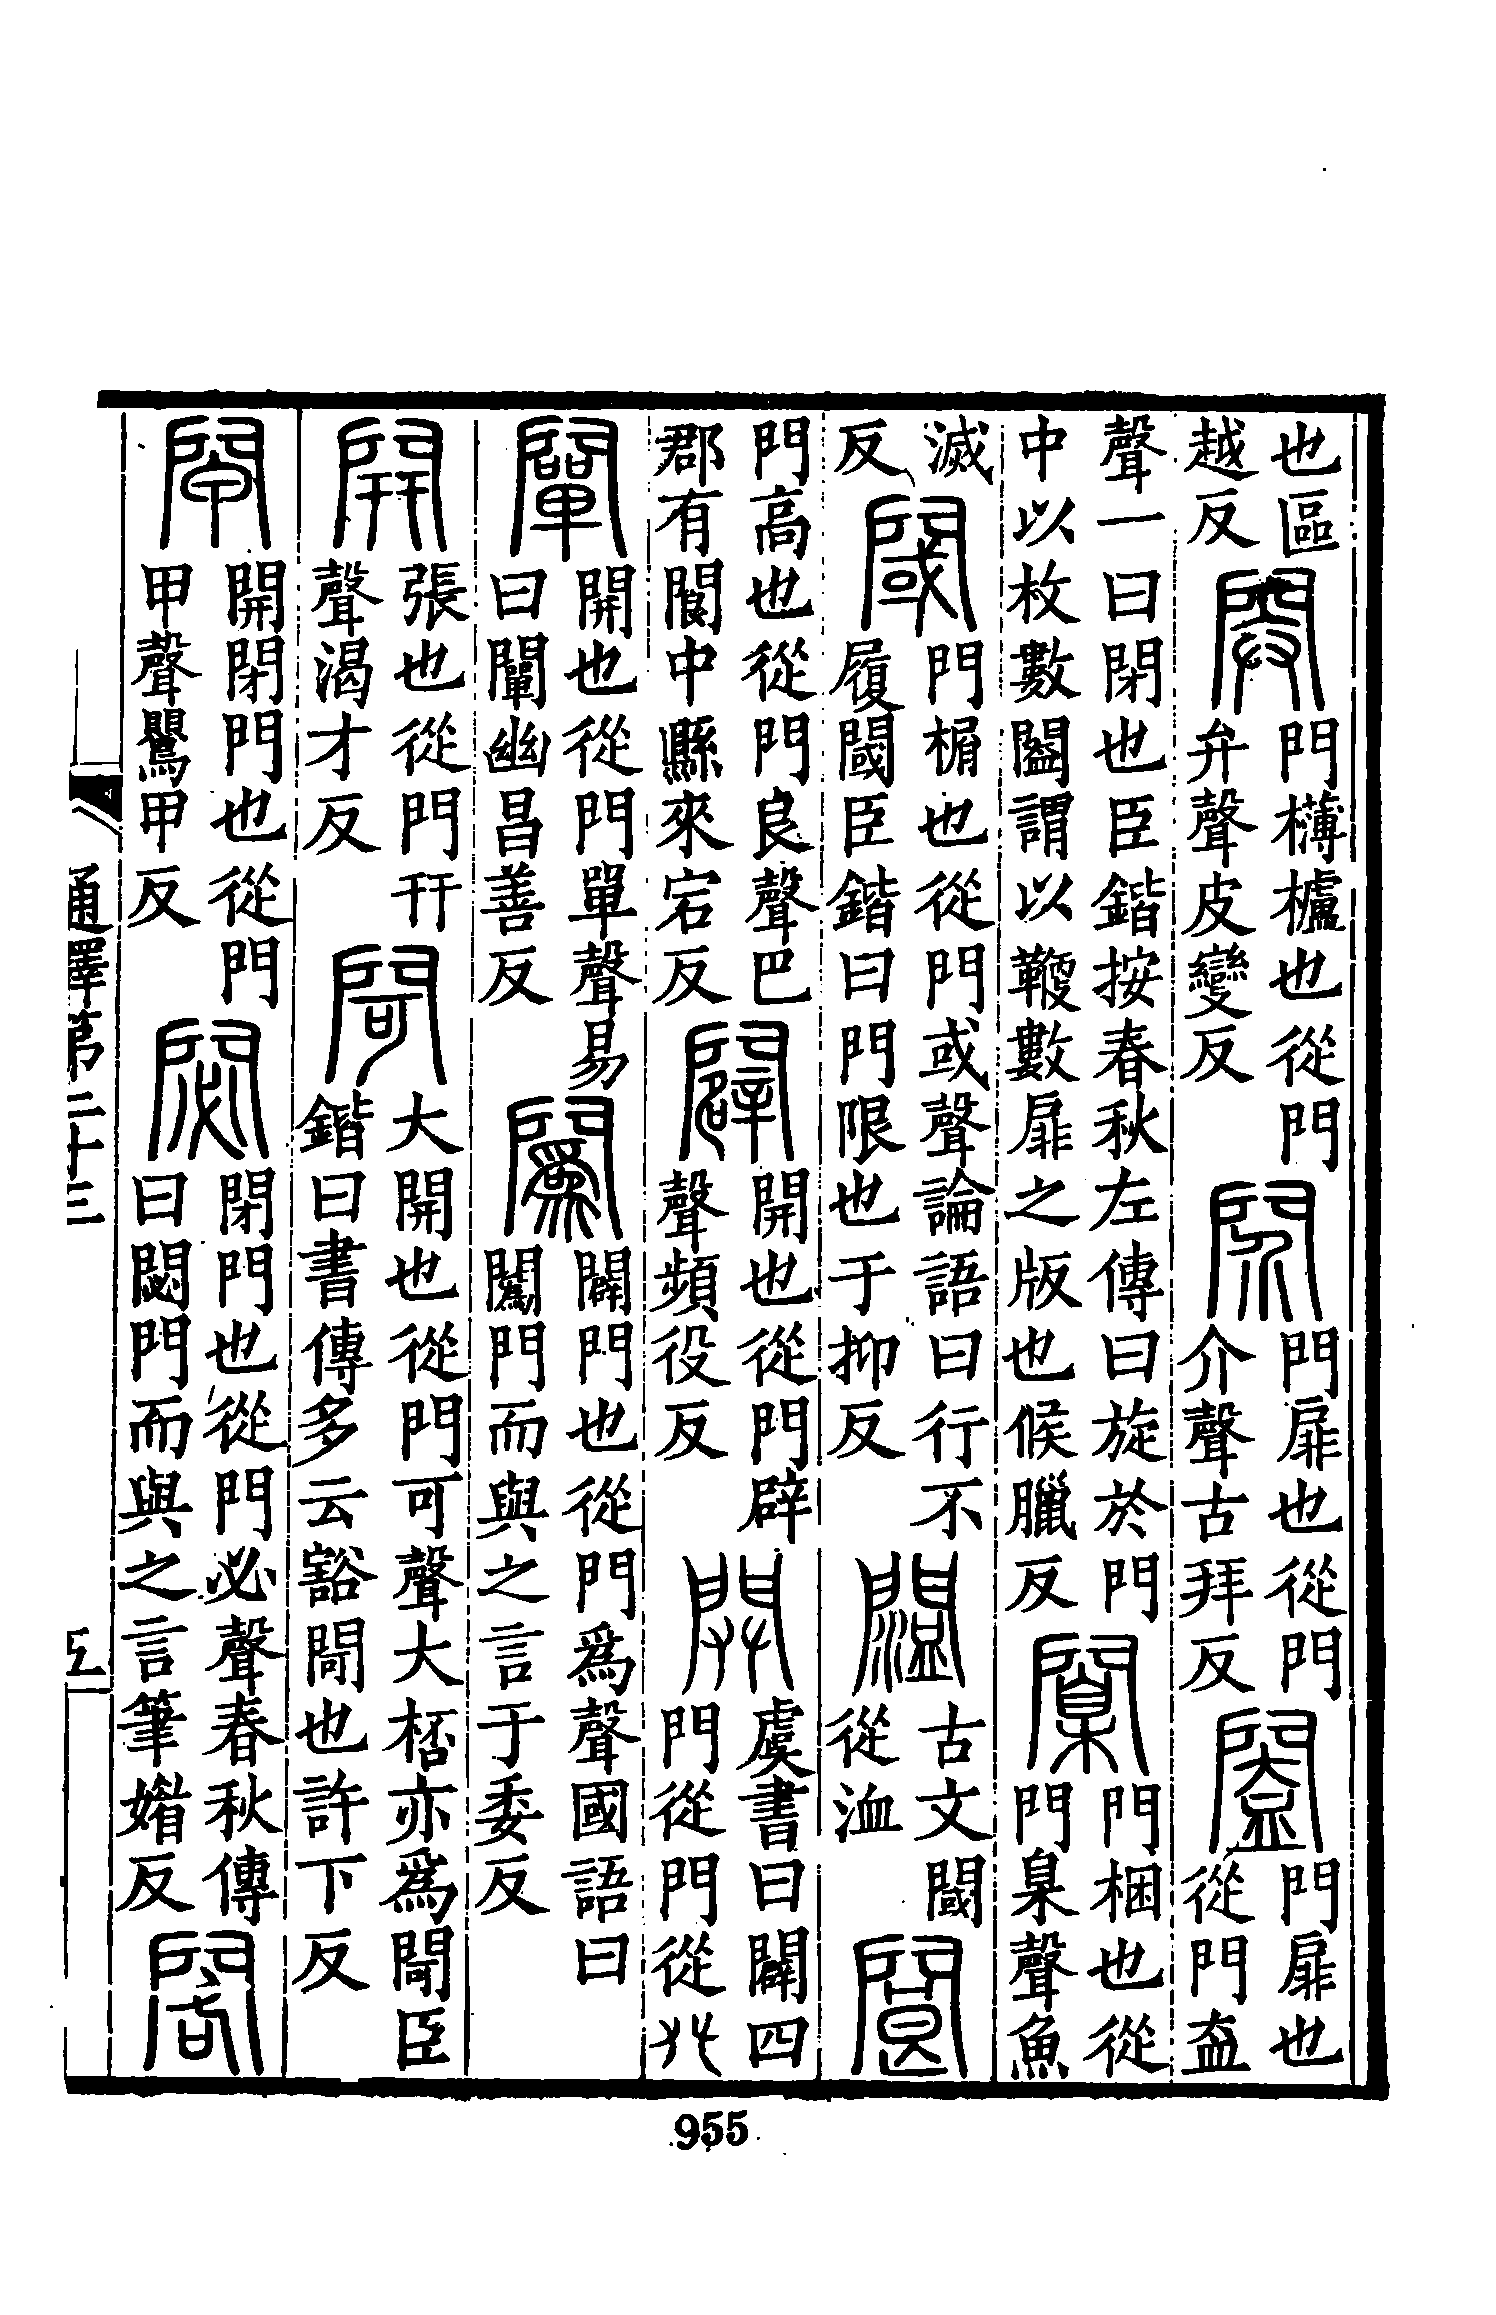 也區
越反
閞
門欂櫨也從門
弁聲皮變反
䦏
門扉也從門
介聲古拜反
闔
門扉也
從門盇
聲一曰閉也臣鍇按春秋左傳曰旋於門
中以枚數闔謂以鞭數扉之版也候臘反
闑
門梱也從
門臬聲魚
滅
反
閾
門榍也從門或聲論語曰行不
履閾臣鍇曰門限也于抑反
𨵹
古文閾
從洫
閬
門高也從門良聲巴
郡有閬中縣來宕反
闢
開也從門辟
聲頻役反
𨳿
虞書曰闢四
門從門從𠬜
闡
開也從門單聲易
曰闡幽昌善反
䦱
闢門也從門爲聲國語曰
䦱門而與之言于委反
開
張也從門幵
聲渴才反
閜
大開也從門可聲大桮亦爲閜臣
鍇曰書傳多云豁閜也許下反
閘
開閉門也從門
甲聲鸎甲反
閟
閉門也從門必聲春秋傳
曰閟門而與之言筆媘反
閣
通釋第二十三
五
955